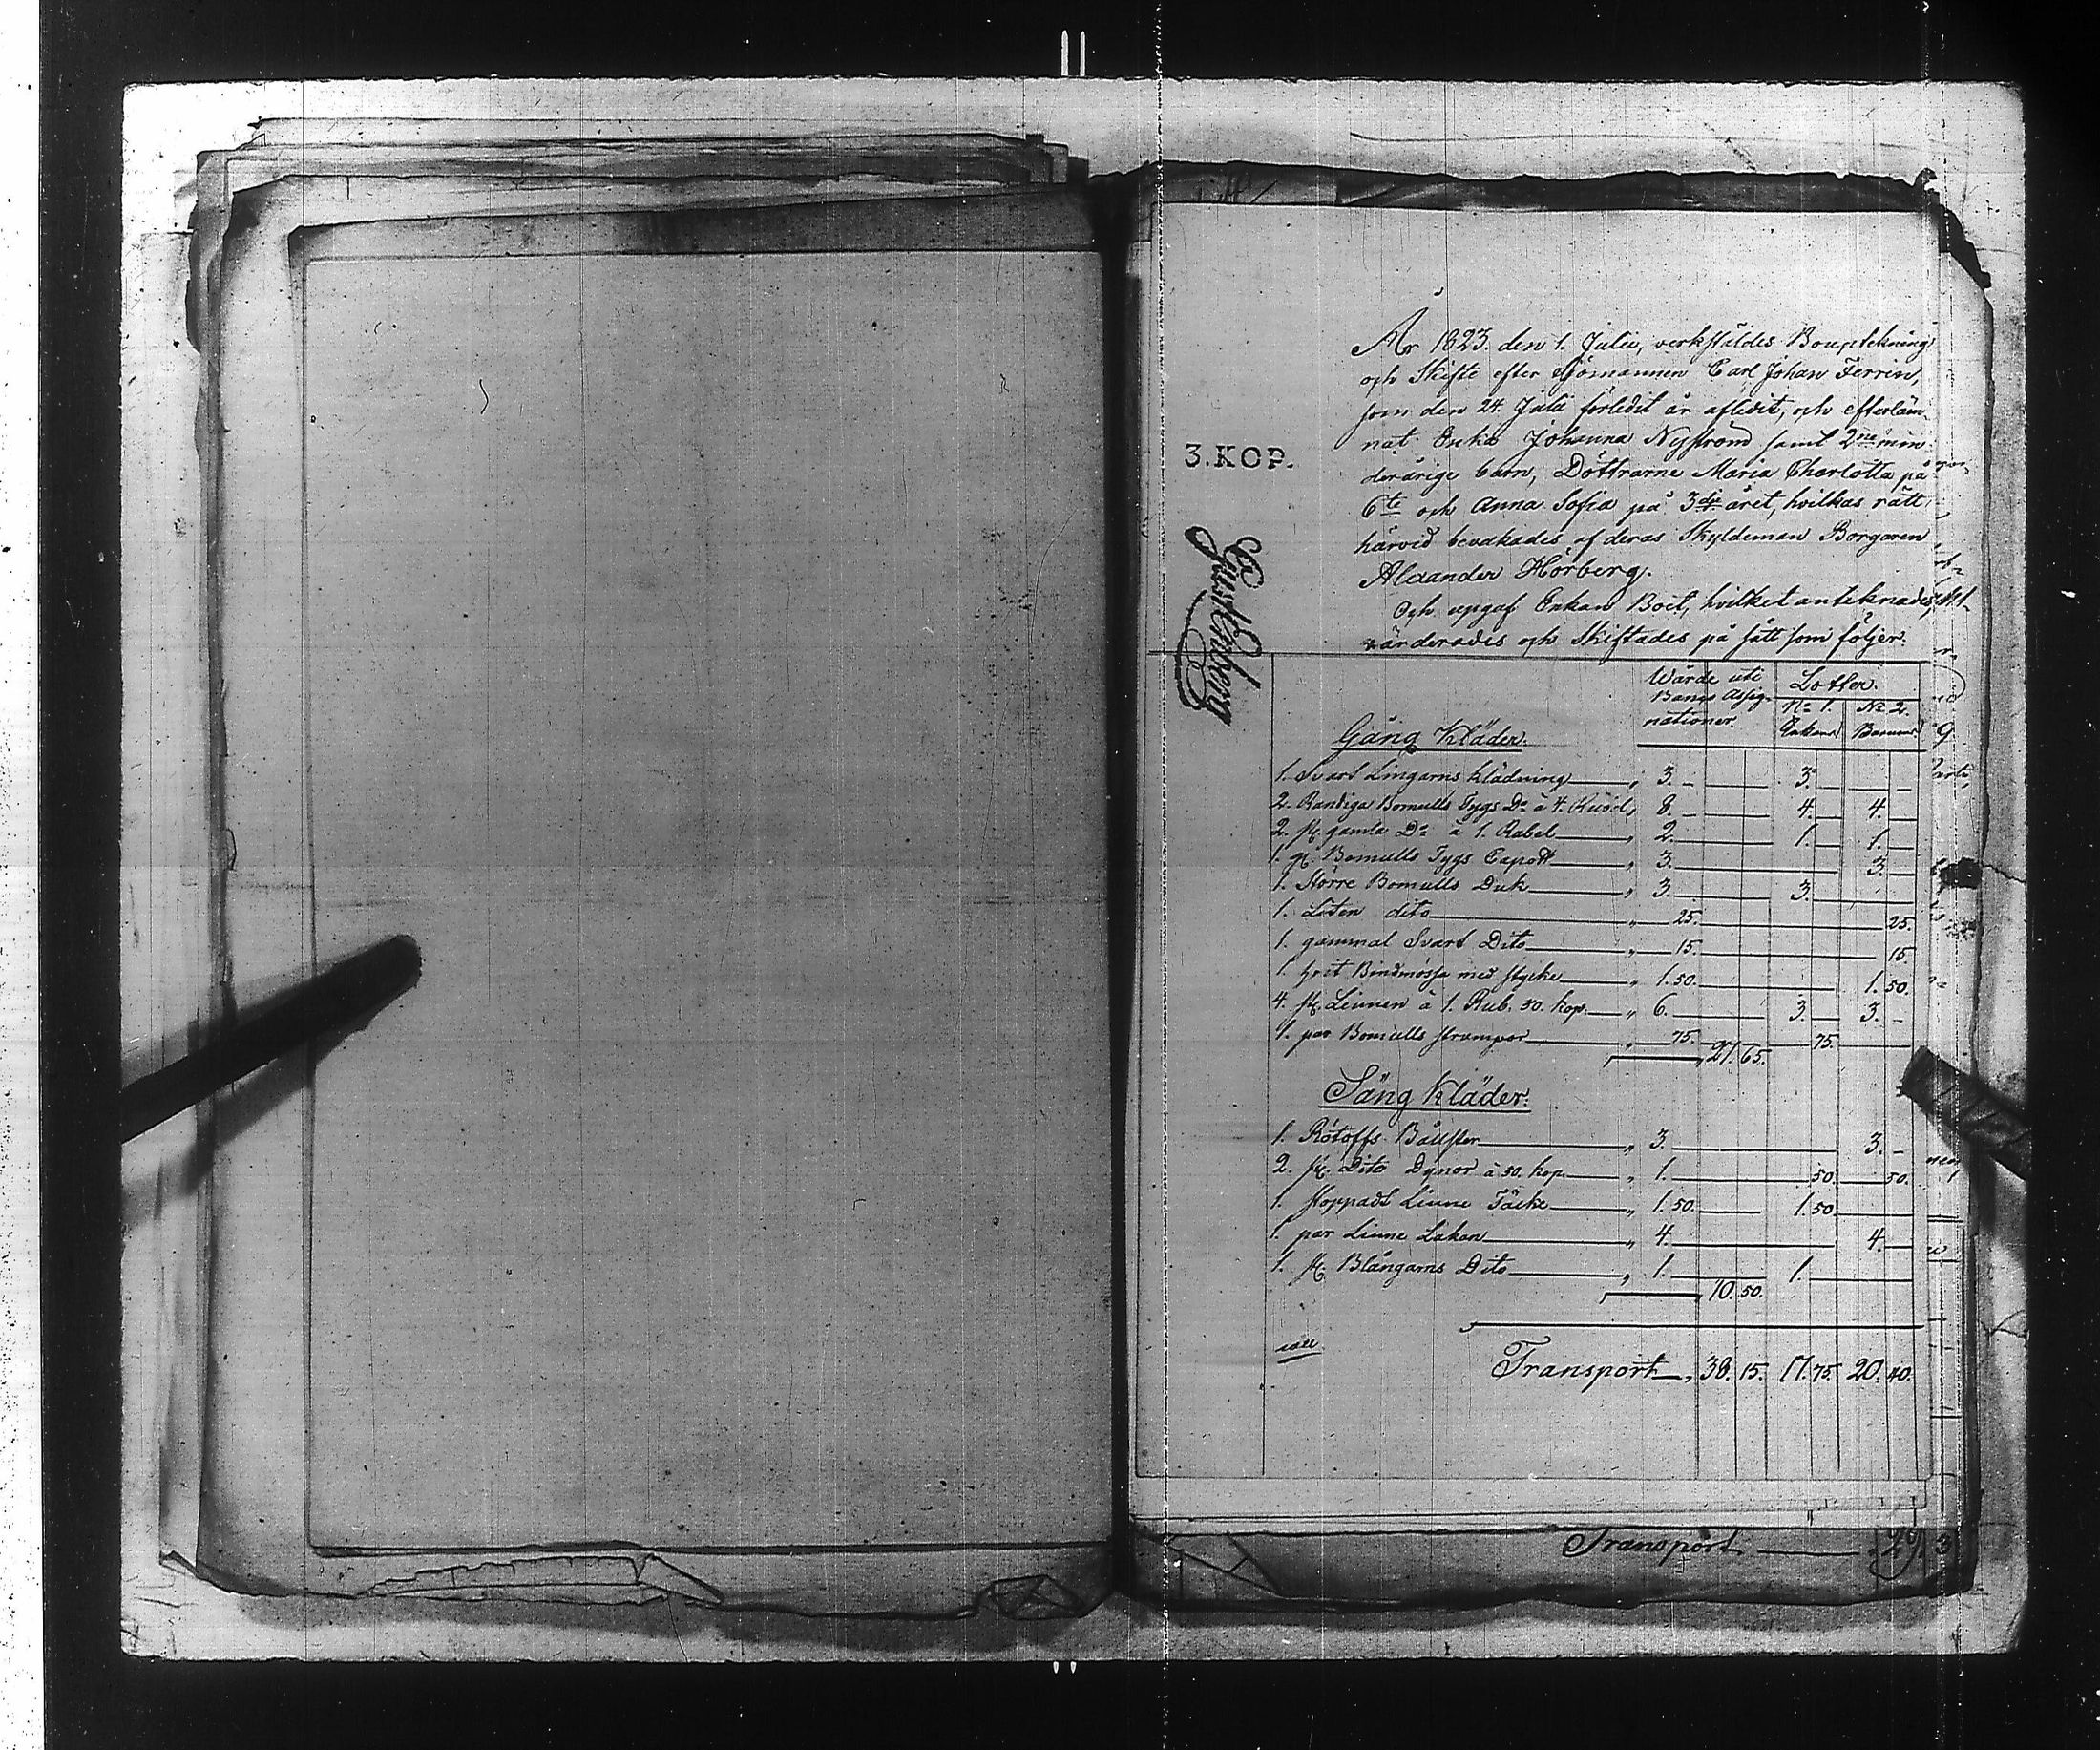 År 1823. den 1. Julii, verkstäldes Bouptekning
och Skifte efter Sjömannen Carl Johan Ferrin,
som den 24. Julii förledit år afledit, och efterläm-
nat Enka Johanna Nyström samt 2ne min-
derårige barn, Döttrarne Maria Charlotta på
6te och Anna Sofia på 3dje året, hvilkas rätt
härvid bevakades af deras Skyldeman Borgaren
Alexander Hörberg.
Och upgaf Enkan Boet, hvilket anteknades,
värderades och Skiftades på sätt som följer.
3.KOP.
Wärde uti Banco Assig-nationer
Lotter.
No 1. Enkans
No 2. Barnens
Gång Kläder.
1. Svart Lingarns Klädning 3. - 3. -
2. Randiga Bomulls Tygs Do à 4. Rubel 8. - 4. 4.
2. st. gamla Do à 1. Rubel 2. 1. 1.
1. st. Bomulls Tygs Capott 3. 3.
1. Större Bomulls Duk 3. 3.
1. Liten dito 25. 25.
1. gammal Svart Dito 15. 15
1. hvit Bindmössa med stycke 1. 50. 1. 50.
4. st. Linnen à 1. Rub. 50. kop. 6. 3. 3. -
1. par Bomulls strumpor 75. 75.
27. 65.
Säng Kläder.
1. Bållster 3. 3. -
2. st. Dito Dynor à 50. kop. 1. 50. 50.
1. stoppadt Linne Täcke 1. 50. 1. 50.
1. par Linne Lakan 4. 4.
1. st. Blångarns Dito 1. 1.
10. 50.
Transport 38. 15. 17. 75. 20. 40.
Transport 29. 3